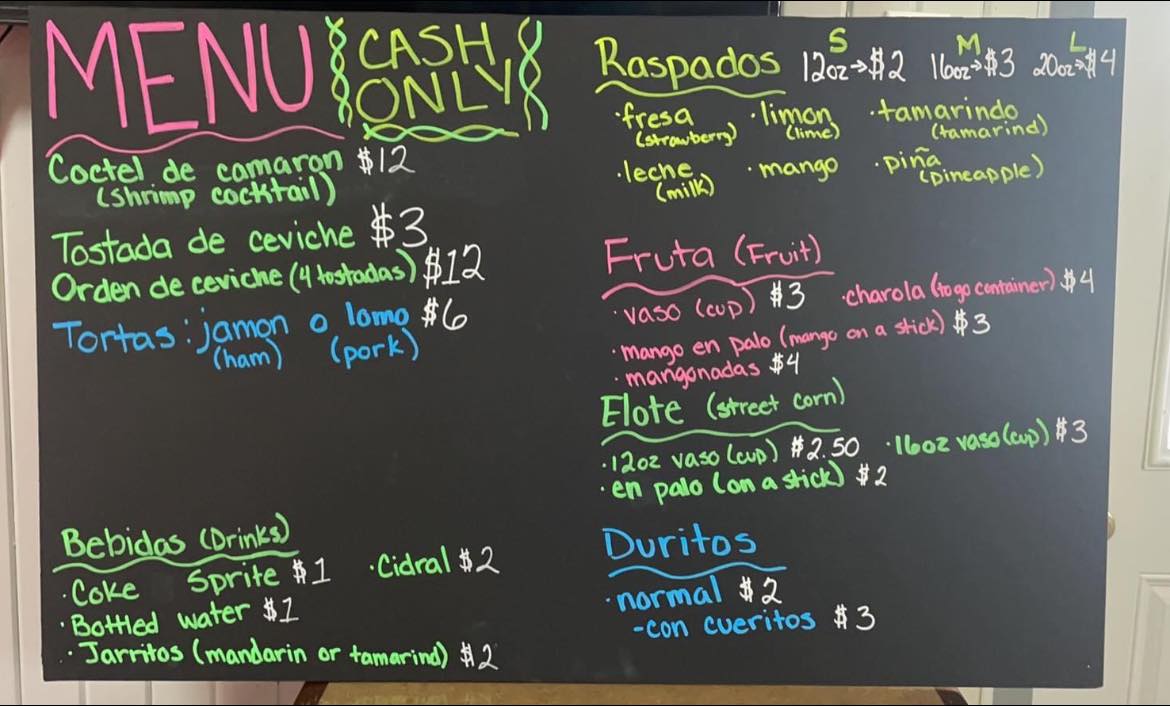 MENU
CASH
ONLY
Coctel de camaron $12
(shrimp cocktail)
Tostada de ceviche $3
Orden de ceviche (4 tostadas) $12
Tortas: jamon o lomo $6
(ham) (pork)
Bebidas (Drinks)
·Coke Sprite $1 ·Cidral $2
·Bottled water $1
·Jarritos (mandarin or tamarind) $2
S M L
Raspados 12oz→$2 16oz→$3 20oz→$4
·fresa ·limon ·tamarindo
(strawberry) (lime) (tamarind)
·leche ·mango ·piña
(milk) (pineapple)
Fruta (Fruit)
·vaso (cup) $3 ·charola (to go container) $4
·mango en palo (mango on a stick) $3
·mangonadas $4
Elote (street corn)
·12oz vaso (cup) $2.50 ·16oz vaso (cup) $3
·en palo (on a stick) $2
Duritos
·normal $2
-con cueritos $3